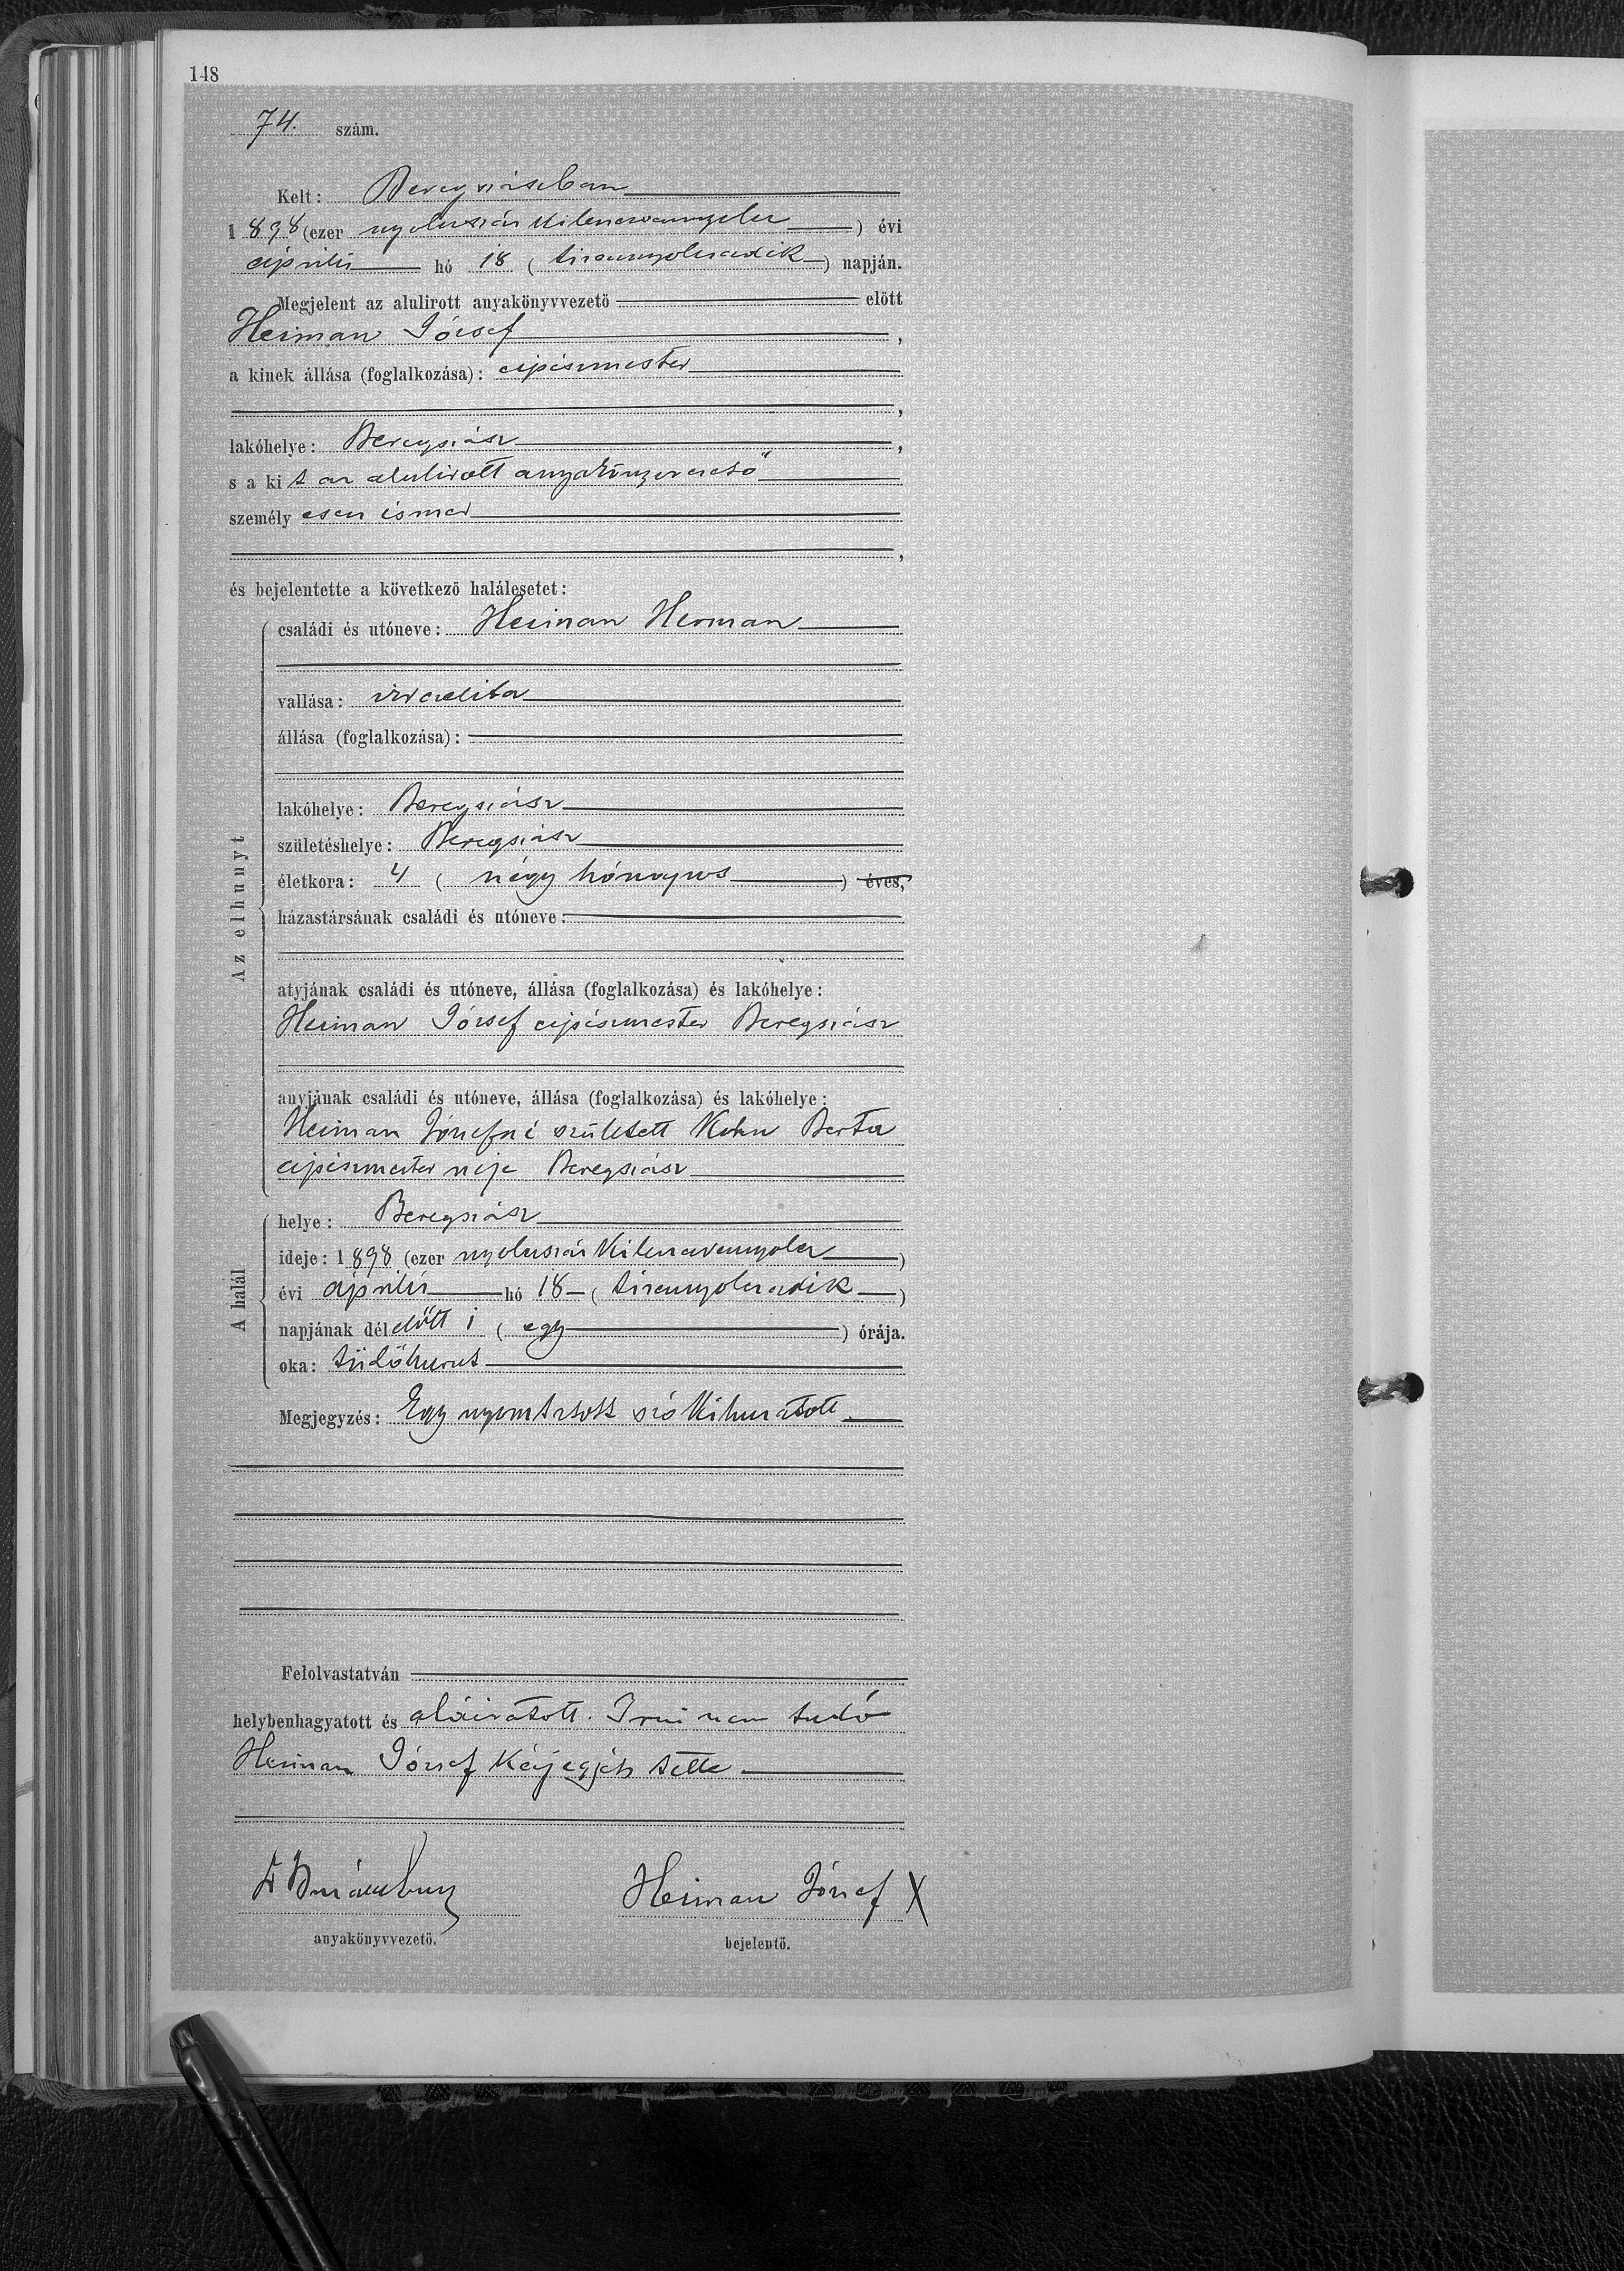 148
74. szám.
Kelt: Beregszászban
1898 (ezer nyolcszáz kilencvennyolcz) évi
április hó 18 (tizennyolczadik) napján.
Megjelent az alulirott anyakönyvvezető előtt
Heiman József,
a kinek állása (foglalkozása): cipészmester
,
lakóhelye: Beregszász,
s a kit az alulirott anyakönyvvezető
személyesen ismer
,
és bejelentette a következő halálesetet:
Az elhunyt
családi és utóneve: Heiman Herman
vallása: izraelita
állása (foglalkozása):
lakóhelye: Beregszász
születéshelye: Beregszász
életkora: 4 (négy hónapos) éves,
házastársának családi és utóneve:
atyjának családi és utóneve, állása (foglalkozása) és lakóhelye:
Heiman József cipészmester Beregszász
anyjának családi és utóneve, állása (foglalkozása) és lakóhelye:
Heiman Józsefné született Kohn Berta
cipészmester neje Beregszász
A halál
helye: Beregszász
ideje: 1898 (ezer nyolcszáz kilencvennyolcz)
évi április hó 18 (tizennyolczadik)
napjának délelőtt 1 (egy) órája.
oka: tüdőhurut
Megjegyzés: Egy nyomtatott szó kihuzatott.
Felolvastatván
helybenhagyatott és aláiratott. Irni nem tudó
Heiman József kézjegyét tette
anyakönyvvezető.
Heiman József X
bejelentő.